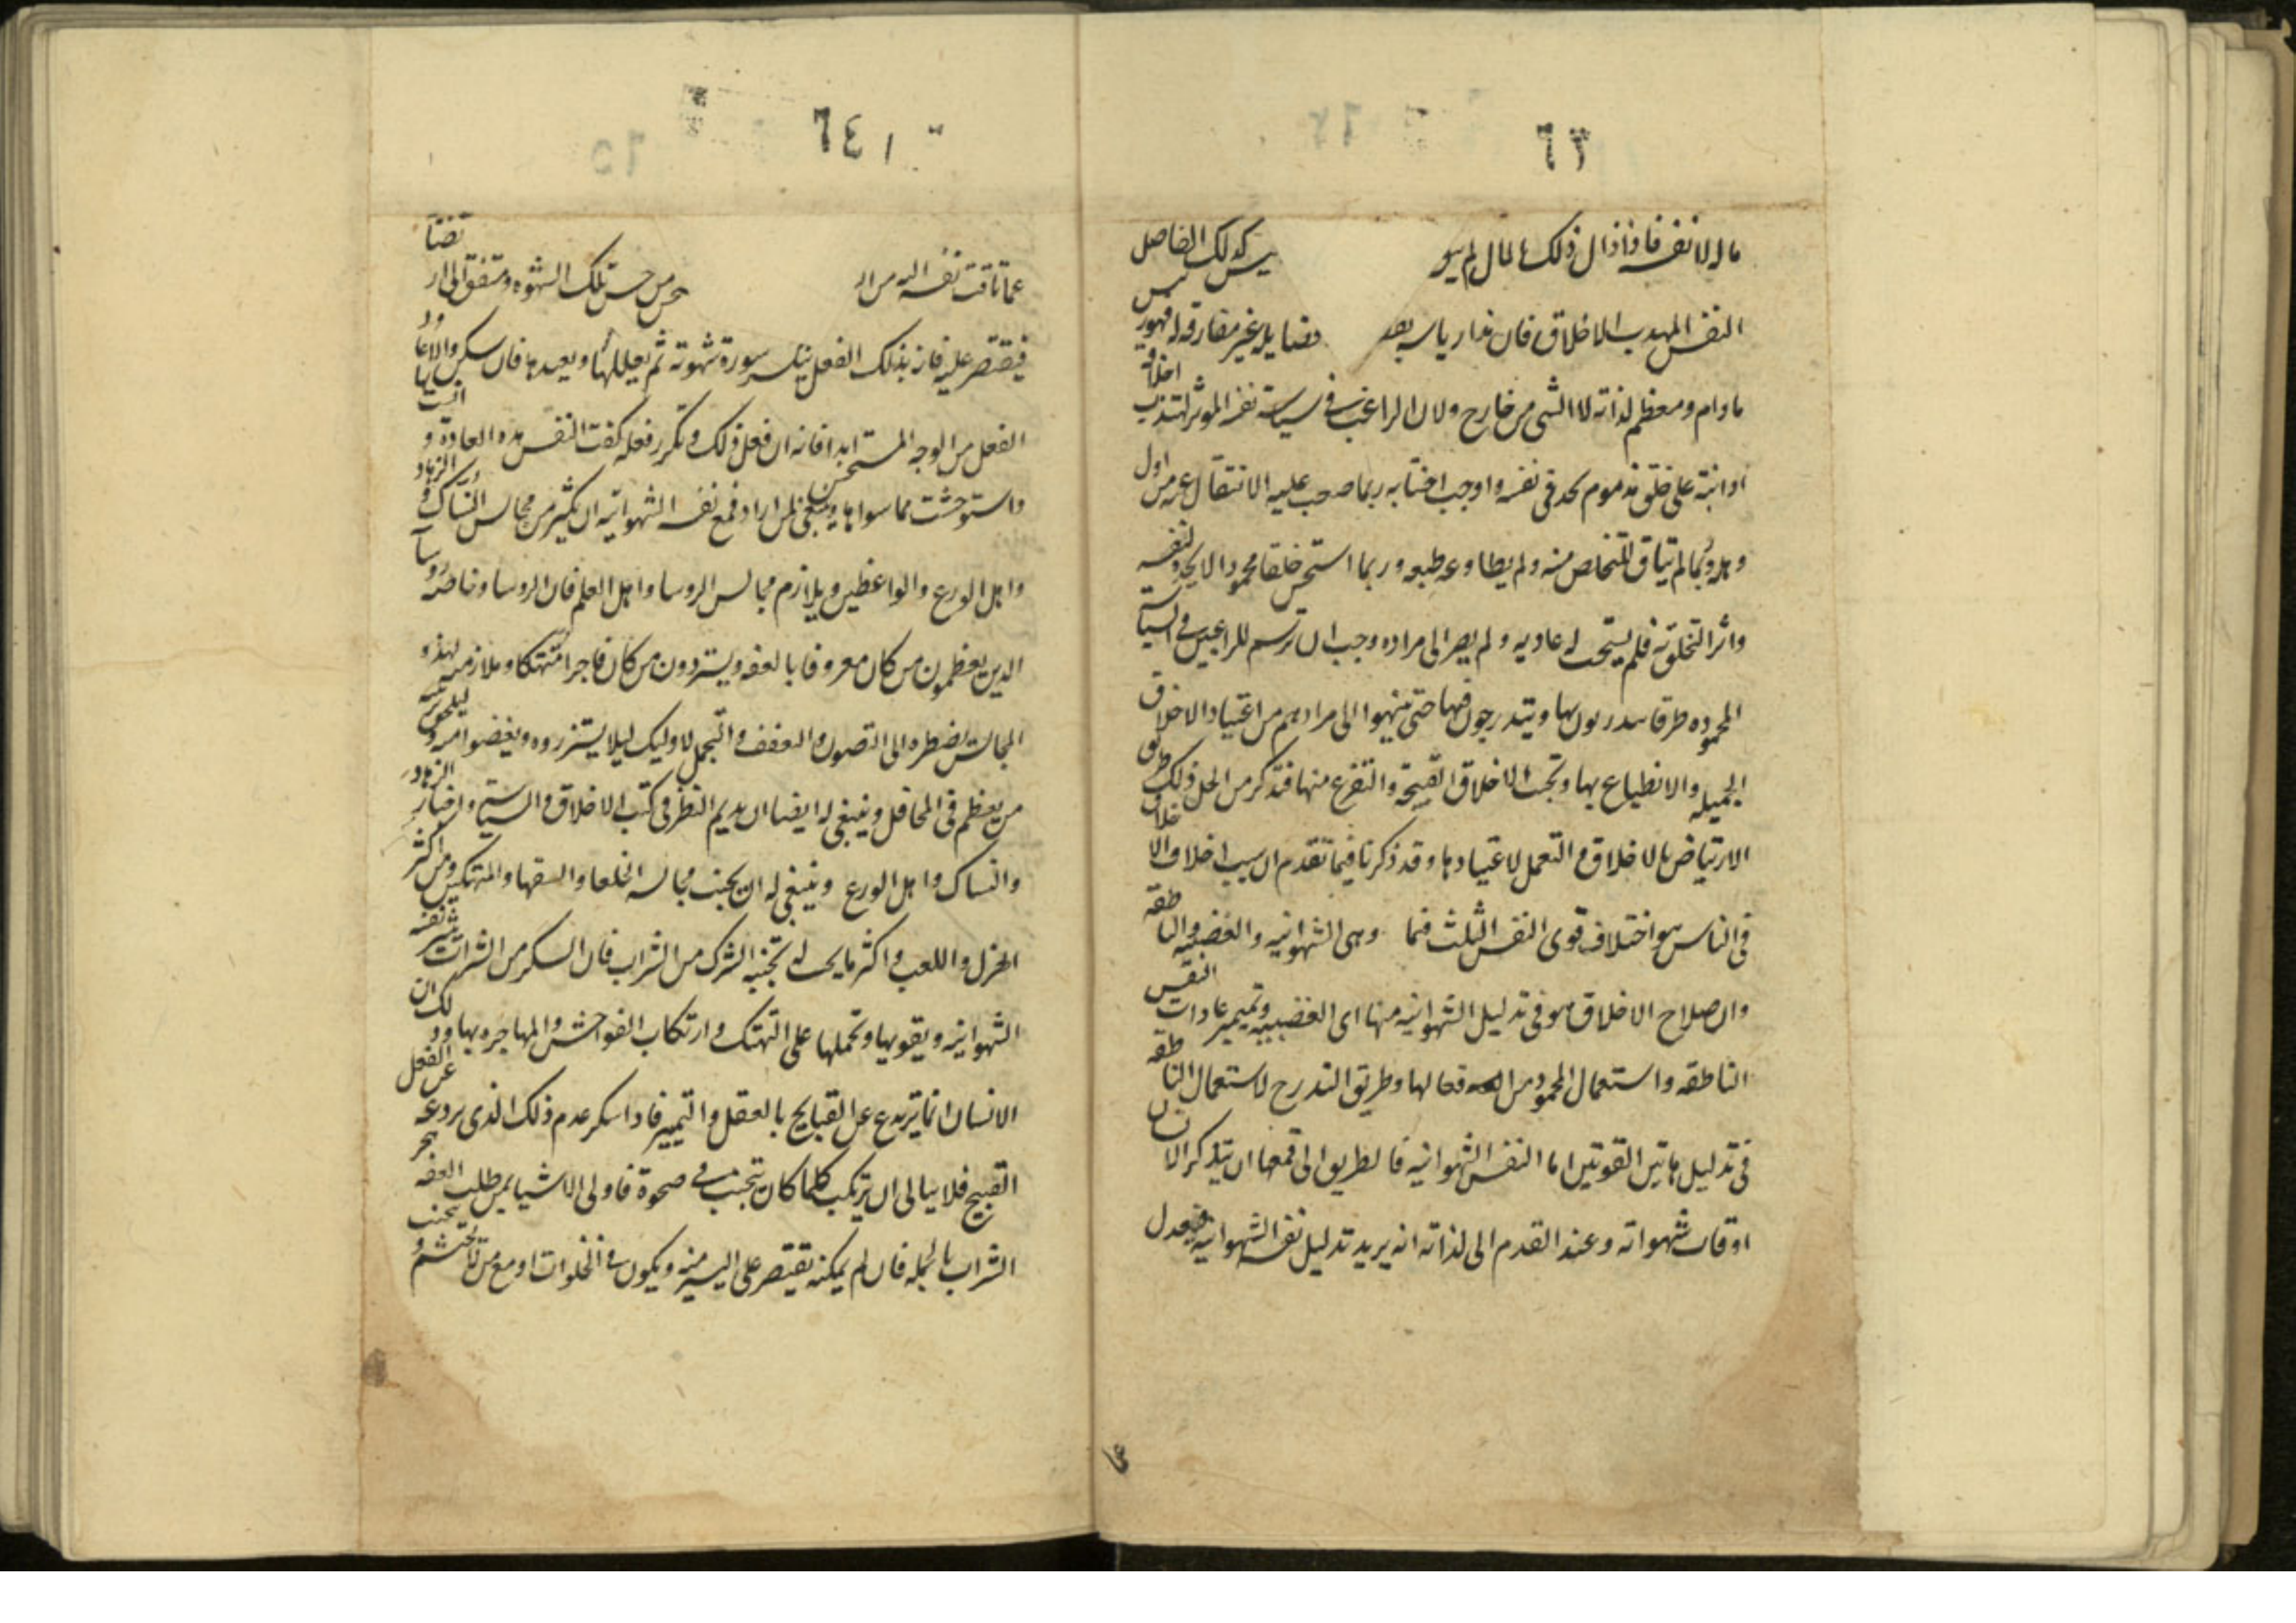 ٦٣
مالا لا نفسه فاذا زال ذلك المال لم يبق
يس كذلك الفاضل
النفس المهذب الاخلاق فان
غير مفارقة له فهو رئيس
ما دام ومعظم لذاته لا الشى من خارج ولان الراغب فى سياسة نفسه الموثر لتهذيب اخلاقه
اذا نبه على خلق مذموم يجده فى نفسه واوجب اجتنابه ربما صعب عليه الانتقال عنه من اول
وهلة وربما لم يتاق للتخلص منه ولم يطاوعه طبعه وربما استحسن خلقا محمودا لا يجده لنفسه
واثر التخلق به فلم يستجب له عاديه ولم يصر الى مراده وجب ان ترسم للراغبين فى السياسة
المحموده طرقا يتدربون بها ويتدرجون فيها حتى ينتهوا الى مرادهم من اعتياد الاخلاق
الجميله والانطباع بها وتجنب الاخلاق القبيحة والتفرغ منها فتذكر من اجل ذلك طريق
الارتياض بالاخلاق والتعمل لاعتيادها وقد ذكرنا فيما تقدم ان سبب اختلاف الاخلاق
فى الناس هو اختلاف قوى النفس الثلث فيها وهى الشهوانيه والغضبيه والناطقه
وان صلاح الاخلاق هو فى تدليل الشهوانيه منها اى الغضبيه وتمييز عادات النفس
الناطقه واستعمال المحمود من افعالها وطريق التدرج لاستعمال الناطقه
فى تدليل هاتين القوتين اما النفس الشهوانيه فالطريق الى قمعها ان يتذكر الانسان
اوقات شهواته وعند القدم الى لذاته انه يريد تدليل نفسه الشهوانيه فيعدل
٦٤
عما تاقت نفسه اليه من
من جنس تلك الشهوه ومتفق
فيقتصر عليه فانه بذلك الفعل ينكسر سورة شهوته ثم يعللها ويعيدها فان سكن والا عاود
الفعل من الوجه المستحسن ابدا فانه ان فعل ذلك وتكرر فعله كفت النفس هذه العادة وانست بها
واستوحشت مما سواها وينبغى لمن اراد قمع نفسه الشهوانيه ان يكثر من مجالس النساك والزهاد
واهل الورع والواعظين ويلازم مجالس الروسا واهل العلم فان الروسا وخاصة روسا
الدين يعظمون من كان معروفا بالعفه ويستزدون من كان فاجرا متهتكا وملازمه لهذه
المجالس يضطره الى التصون والتعفف والتجمل لاوليك ليلا يستزروه ويغضوا منه وليلحق برتبة
من يعظم فى المحافل وينبغى له ايضا ان يديم النظر فى كتب الاخلاق والسياسة واخبار الزهاد
والنساك واهل الورع وينبغى له ان يجنب مجالسه الخلعا والسفها والمتهتكين ومن اكثر
الهزل واللعب واكثر ما يجب له تجنبه السكر من الشراب فان السكر من الشراب تثير نفسه
الشهوانيه ويقويها وتحملها على التهتك وارتكاب الفواحش والمهاجره بها وذلك ان
الانسان انما يرتدع عن القبايح بالعقل والتمييز فاذا سكر عدم ذلك الذى يردعه عن الفعل
القبيح فلا يبالى ان يرتكب كلما كان يتجنب فى صحوة فاولى الاشيا بمن طلب العفه هجر
الشراب بالجمله فان لم يمكنه يقتصر على اليسير منه ويكون فى الخلوات او مع من لا يحتشمه ويجنب